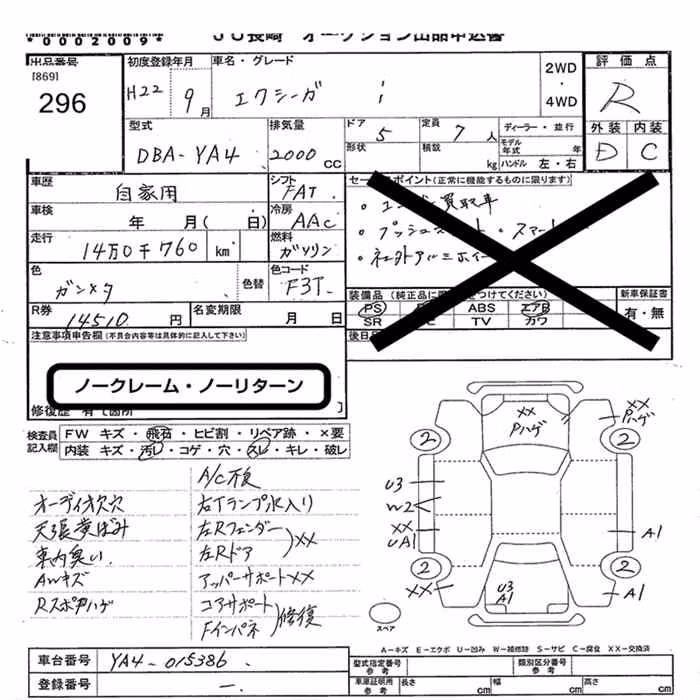 *0002009*
JU長崎 オークション出品申込書
出品番号
[869]
296
初度登録年月
H22 9月
車名・グレード
エクシーガ i
2WD
・
4WD
評価点
R
外装 内装
D C
型式
DBA-YA4
排気量
2000 CC
ドア 5
形状
定員 7 人
積載 kg
ディーラー・並行
モデル年式 年
ハンドル 左・右
車歴
自家用
シフト
FAT
車検
年 月( 日)
冷房
AAC
走行
14万0千760 km
燃料
ガソリン
色
ガンメタ
色替
色コード
F3T
R券
14510 円
名変期限
月 日
セールスポイント(正常に機能するものに限ります)
装備品(純正品に つけてください)
PS ABS エアB
SR TV カワ
新車保証書
有・無
後日
注意事項申告欄(不具合内容等は具体的に記入して下さい)
ノークレーム・ノーリターン
修復歴 有 箇所
検査員記入欄
FW キズ・飛石・ヒビ割・リペア跡・×要
内装 キズ・汚レ・コゲ・穴・スレ・キレ・破レ
A/C不良
オーディオ欠穴
天張黄ばみ
車内臭い
AWキズ
Rスポアハゲ
右Tランプ水入り
左Rフェンダー
左Rドア
XX
アッパーサポートXX
コアサポート
Fインパネ
修復
XX
Pハゲ
XX
Pハゲ
2
2
U3
W2
XX
UA1
XX
2
2
A1
A1
U3
A1
スペア
A-キズ E-エクボ U-凹み W-補修跡 S-サビ C-腐食 XX-交換済
車台番号
YA4-015386
登録番号
-
型式指定番号
参考
類別区分番号
参考
車庫証明用
参考
長さ cm
幅 cm
高さ cm